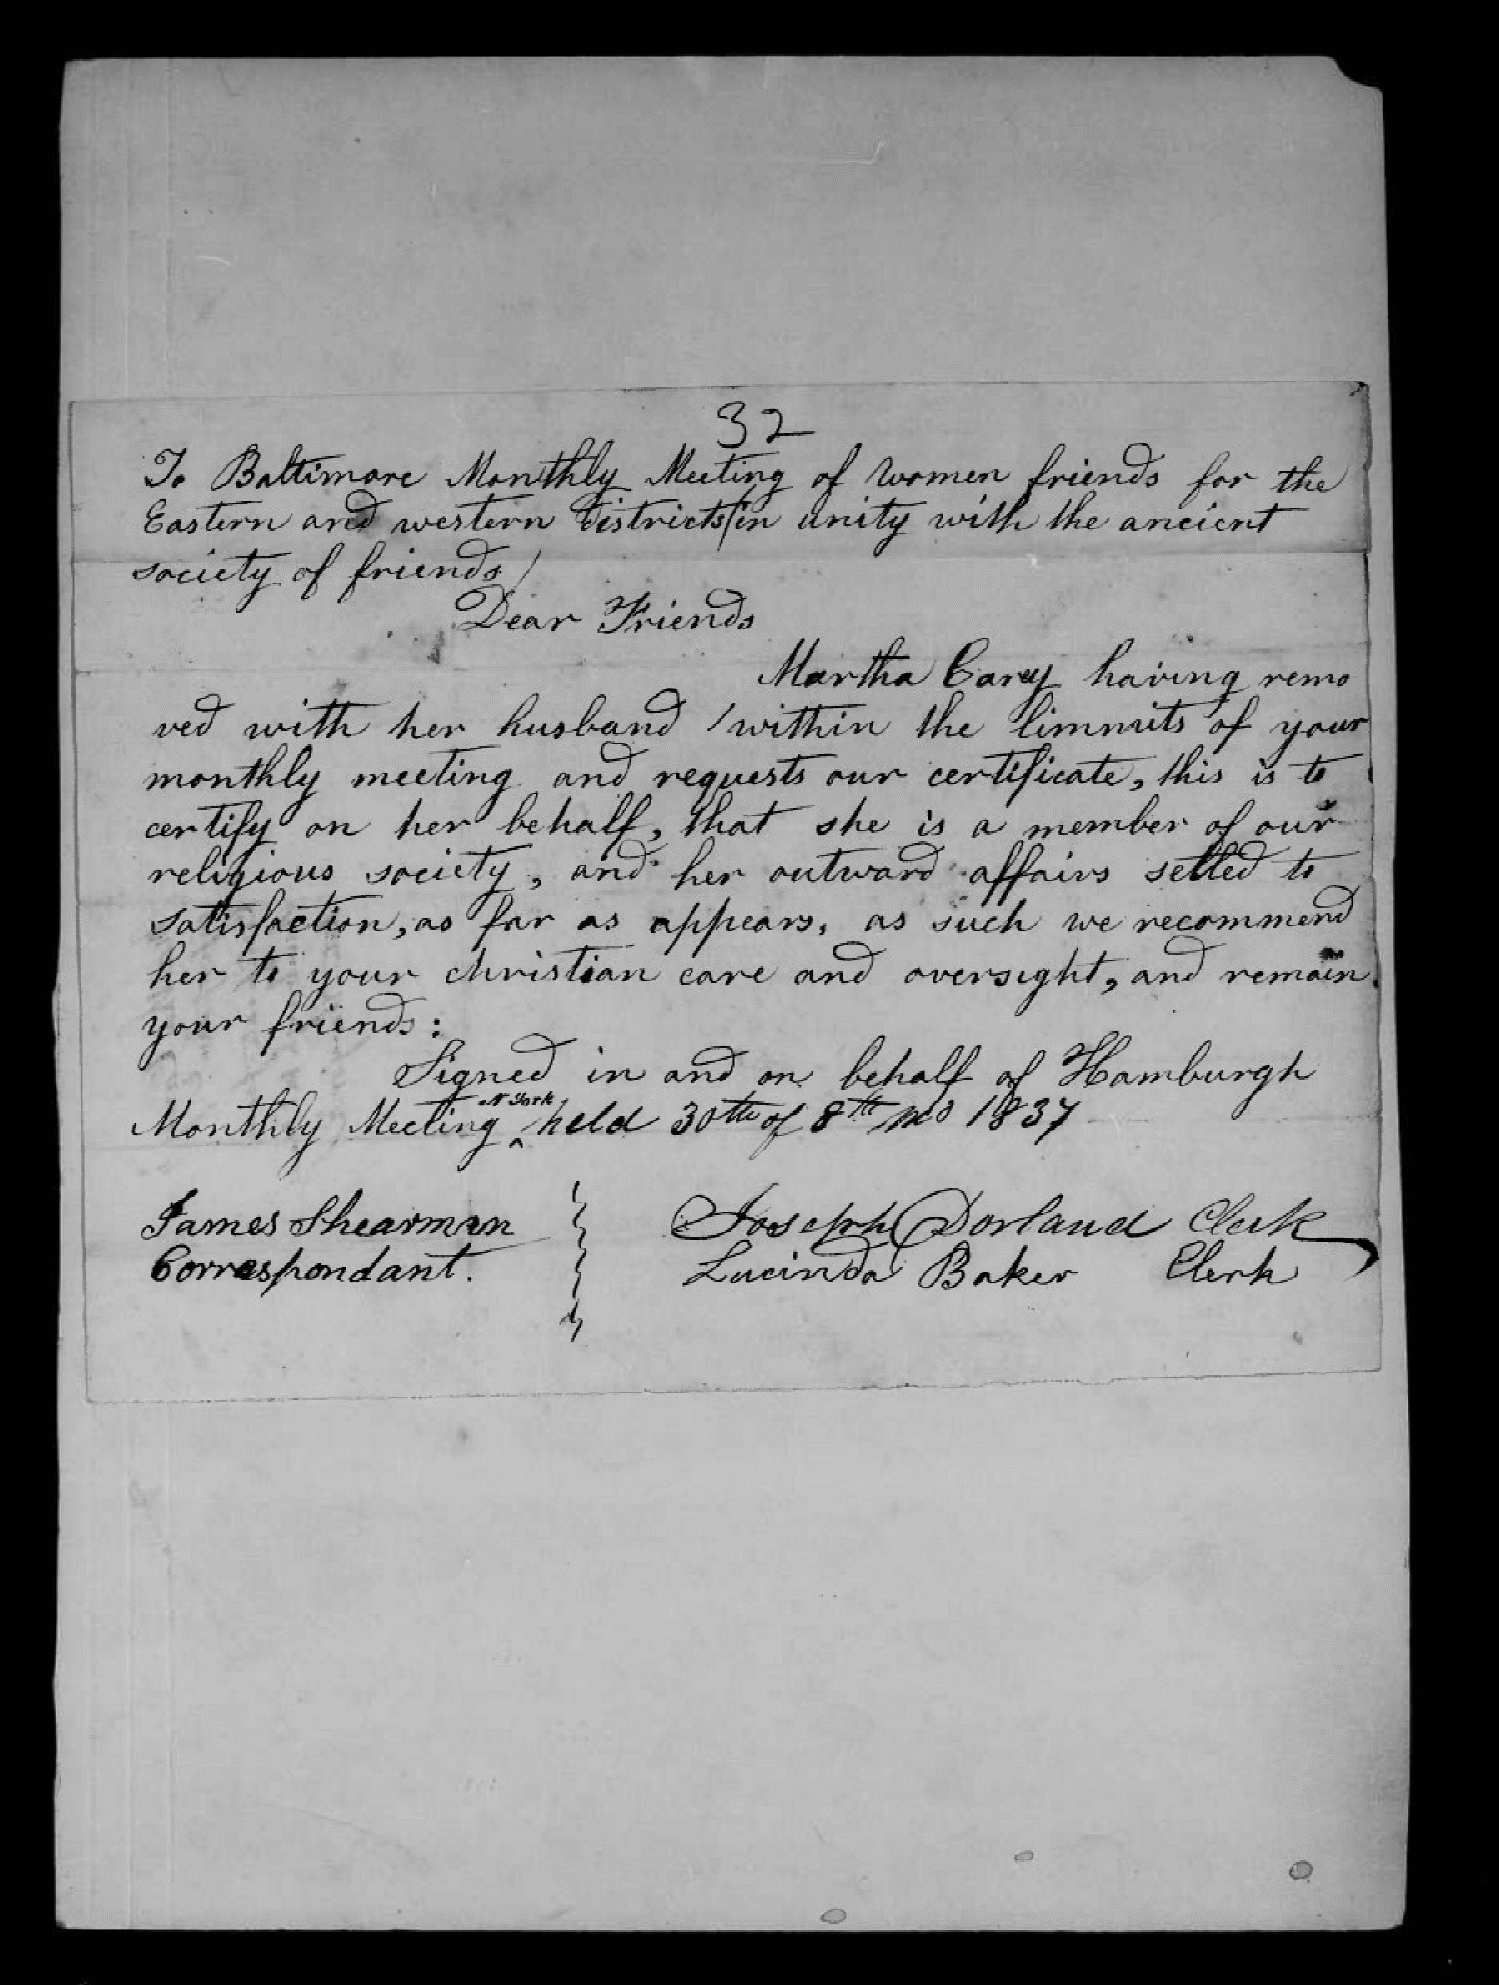 32
To Baltimore Monthly Meeting of women friends for the
Eastern and western Districts/in unity with the ancient
society of friends/
Dear Friends
Martha Carey having remo
ved with her husband /within the limmits of your
monthly meeting and requests our certificate, this is to
certify on her behalf, that she is a member of our
religious society, and her outward affairs setled to
satisfaction, as far as appears, as such we recommend
her to your christian care and oversight, and remain
your friends:
Signed in and on behalf of Hamburgh
Monthly Meeting ^ N York held 30th of 8th mo 1837
James Shearman Joseph Dorland Clerk
Correspondant. Lucinda Baker Clerk